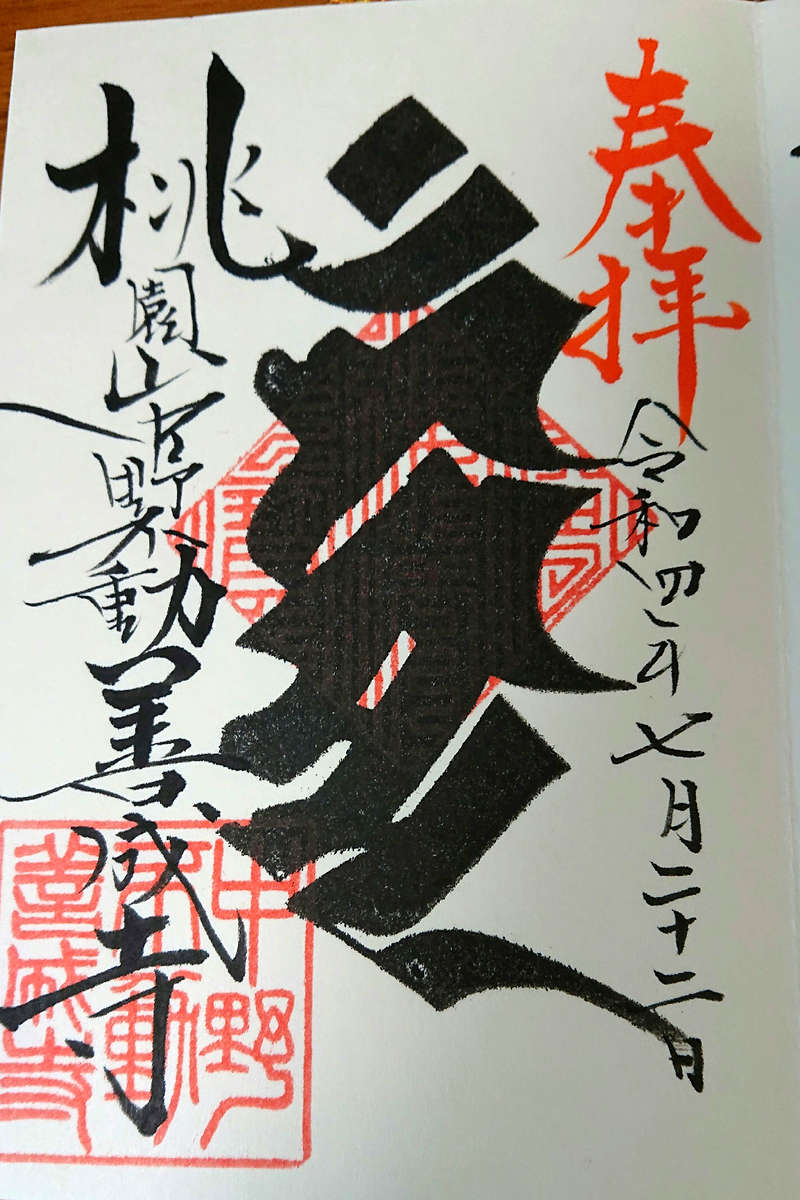 奉拝
令和四年七月二十二日
桃園山中野不動善成寺
中野
不動
善成寺